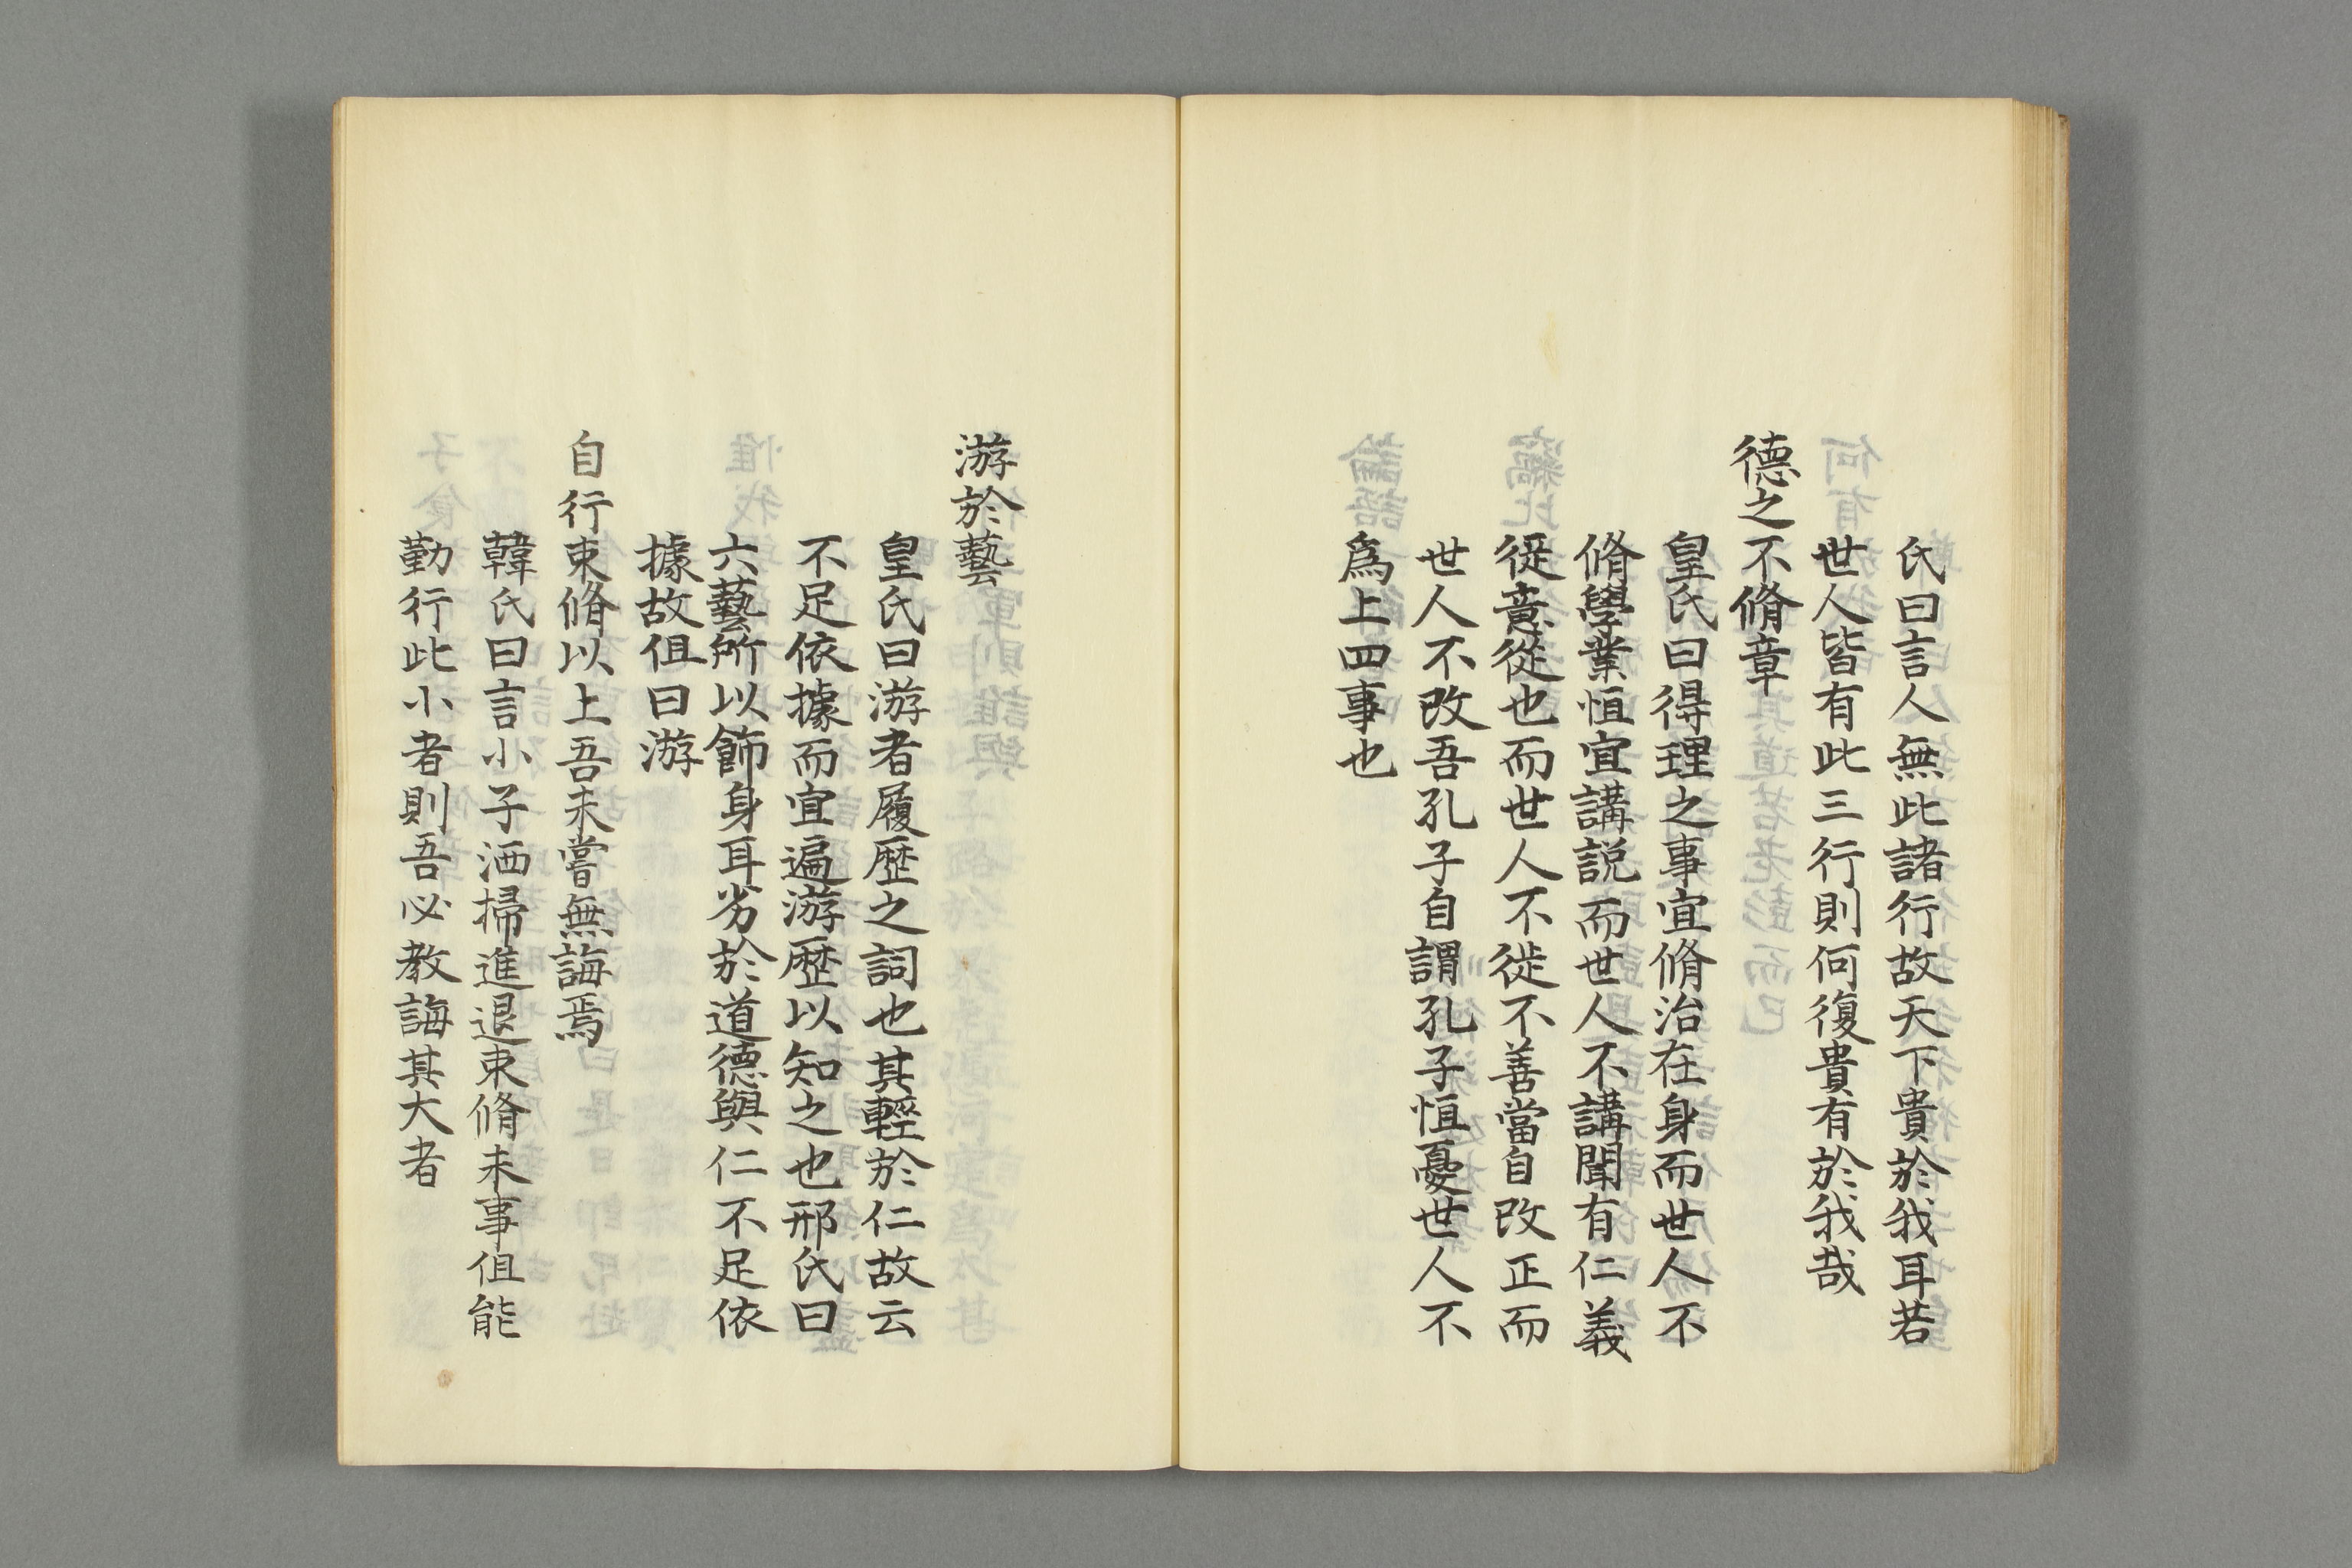 氏曰言人無此諸行故天下貴於我耳若
世人皆有此三行則何復貴有於我哉
德之不脩章
皇氏曰得理之事宜脩治在身而世人不
脩學業恒宜講説而世人不講聞有仁義
徙意從也而世人不徙不善當自改正而
世人不改吾孔子自謂孔子恒憂世人不
爲上四事也
游於藝
皇氏曰游者履歴之詞也其輕於仁故云
不足依據而宜遍游歴以知之也邢氏曰
六藝所以飾身耳劣於道德與仁不足依
據故伹曰游
自行束脩以上吾未嘗無誨焉
韓氏曰言小子洒掃進退束脩末事伹能
勤行此小者則吾必教誨其大者